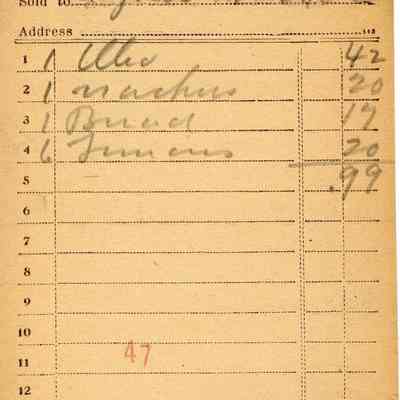 Sold to
Address
1 1 Oleo 42
2 1 20
3 1 Bread 17
4 6 Lemons 20
5 .99
6
7
8
9
10
47
11
12